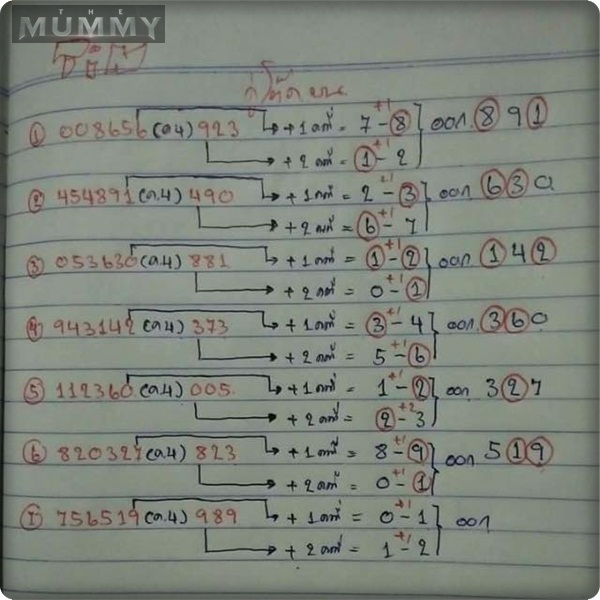 THE
MUMMY
คู่โต๊ดบน
① 008656 (ค4) 923 +1คที่ = 7 - 8 +1 ออก. 8 9 1
+2คที่ = 1 - 2
② 454891 (ค.4) 490 +1คที่ = 2 - 3 +1 ออก. 6 3 0
+2คที่ = 6 - 7 +1
③ 053630 (ค.4) 881 +1คที่ = 1 - 2 +1 ออก. 1 4 2
+2คที่ = 0 - 1 +1
④ 943142 (ค.4) 373 +1คที่ = 3 - 4 +1 ออก. 3 6 0
+2คที่ = 5 - 6 +1
⑤ 112360 (ค.4) 005 +1คที่ = 1 - 2 +1 ออก 3 2 7
+2คที่ = 2 - 3 +2
⑥ 820327 (ค.4) 823 +1คที่ = 8 - 9 +1 ออก 5 1 9
+2คที่ = 0 - 1 +1
⑦ 756519 (ค.4) 989 +1คที่ = 0 - 1 +1 ออก
+2คที่ = 1 - 2 +1